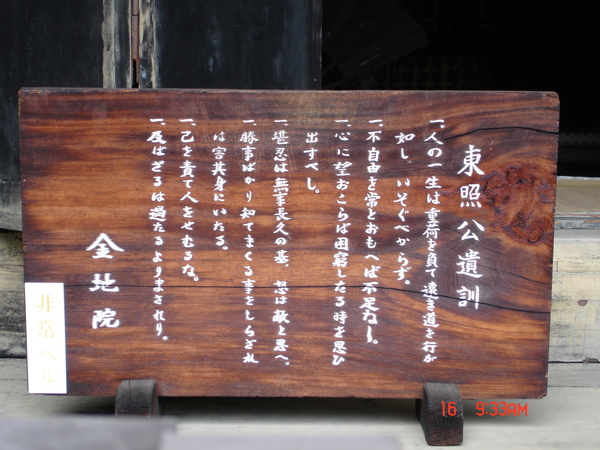 東照公遺訓
一、人の一生は重荷を負て遠き道を行が
如し、いそぐべからず。
一、不自由を常とおもへば不足なし。
一、心に望おこらば困窮したる時を思ひ
出すべし。
一、堪忍は無事長久の基、怒は敵と思へ。
一、勝事ばかり知てまくる事をしらざれ
ば害其身にいたる。
一、己を責て人をせむるな。
一、及ばざるは過たるよりまされり。
金地院
非常ベル
16 9:33AM